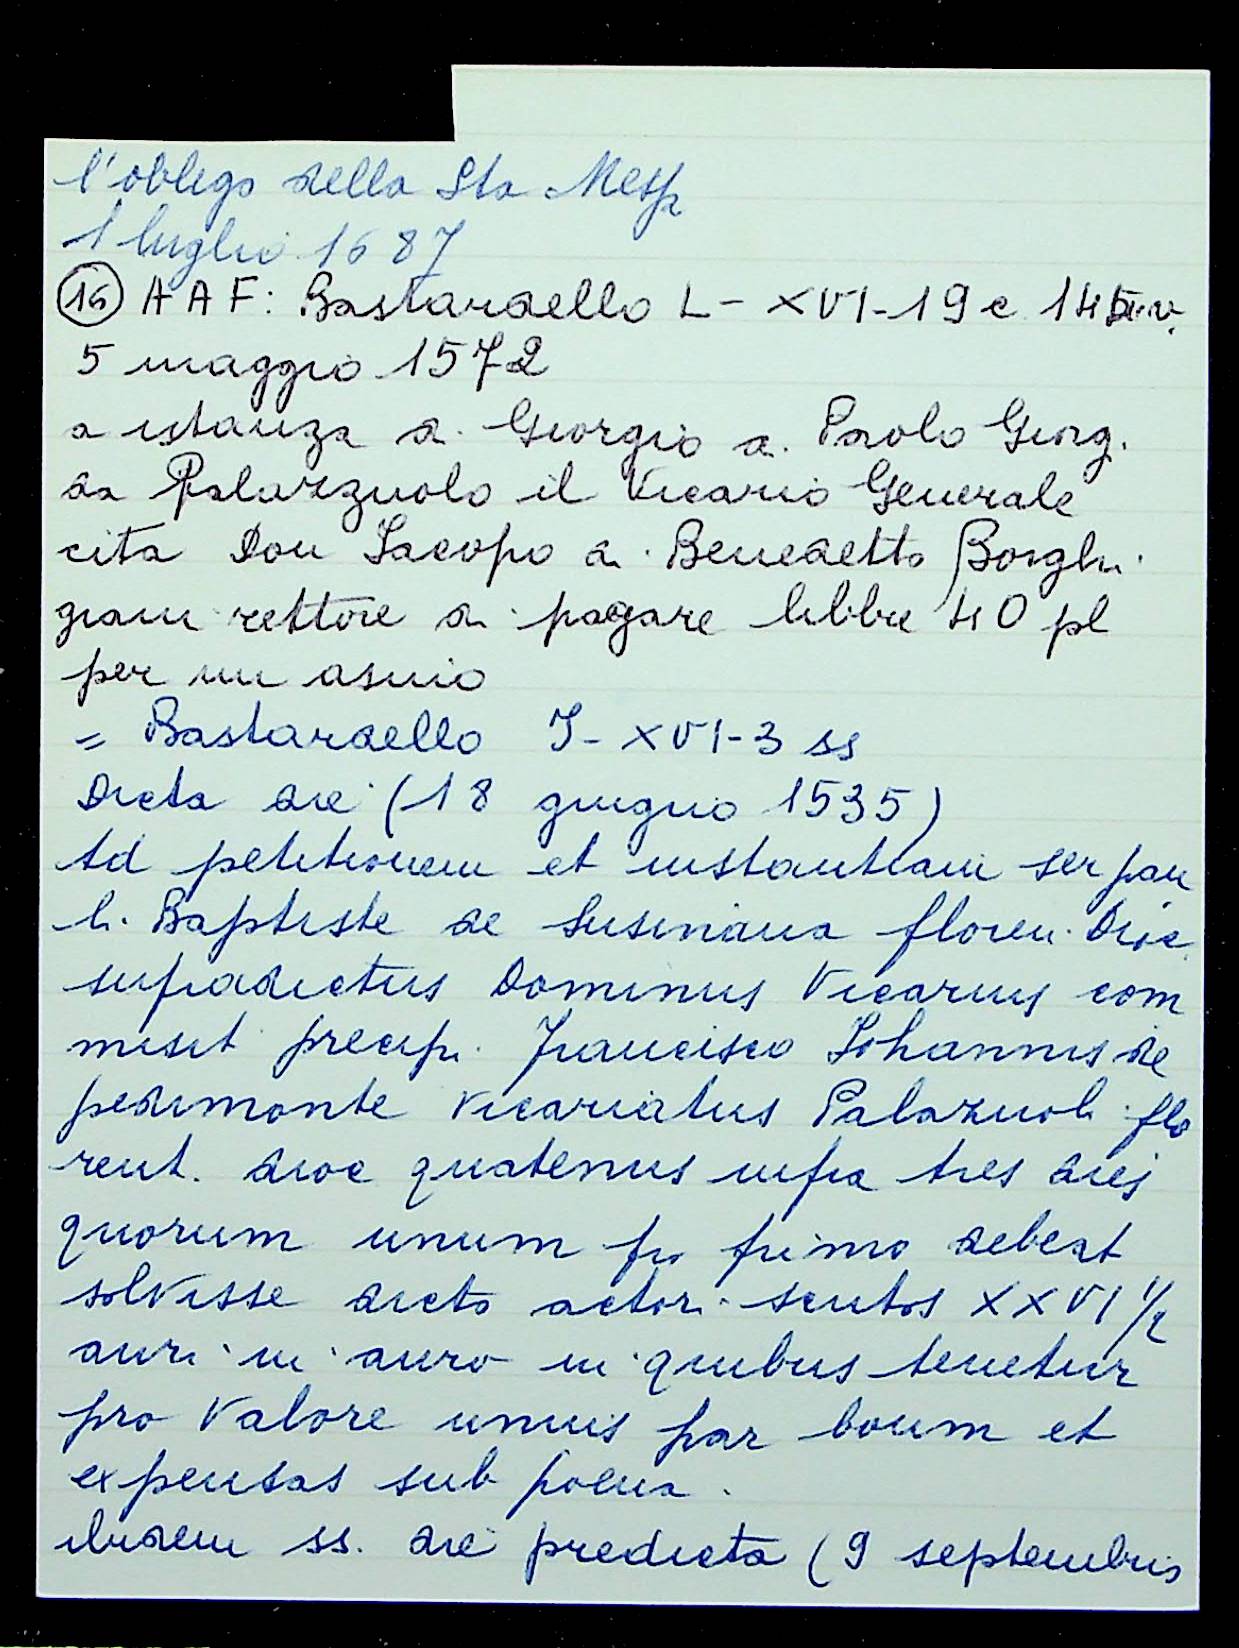 l'obligo della Sta Messa
1 luglio 1687
(16) AAF: Bastardello L-XVI-19 c 14 v.
5 maggio 1572
a istanza d. Giorgio d. Paolo Giorg.
da Palazzuolo il Vicario Generale
cita Don Jacopo d. Benedetto Borghi
giani rettore di pagare libbre 40 pl
per un asino
= Bastardello I-XVI-3 ss
Dicta die (18 giugno 1535)
Ad petitionem et instantiam ser pau
li Baptiste de Susinana floren. Dioc.
supradictus Dominus Vicarius com
misit precip. Francisco Johannis de
pedimonte vicariatus Palazuoli flo
rent. dioc quatenus infra tres dies
quorum unum pro primo debeat
solvisse dicto actori scutos XXVI 1/2
auri in auro in quibus tenetur
pro valore unius par boum et
expensas sub poena.
ibidem ss. die predicta (9 septembris